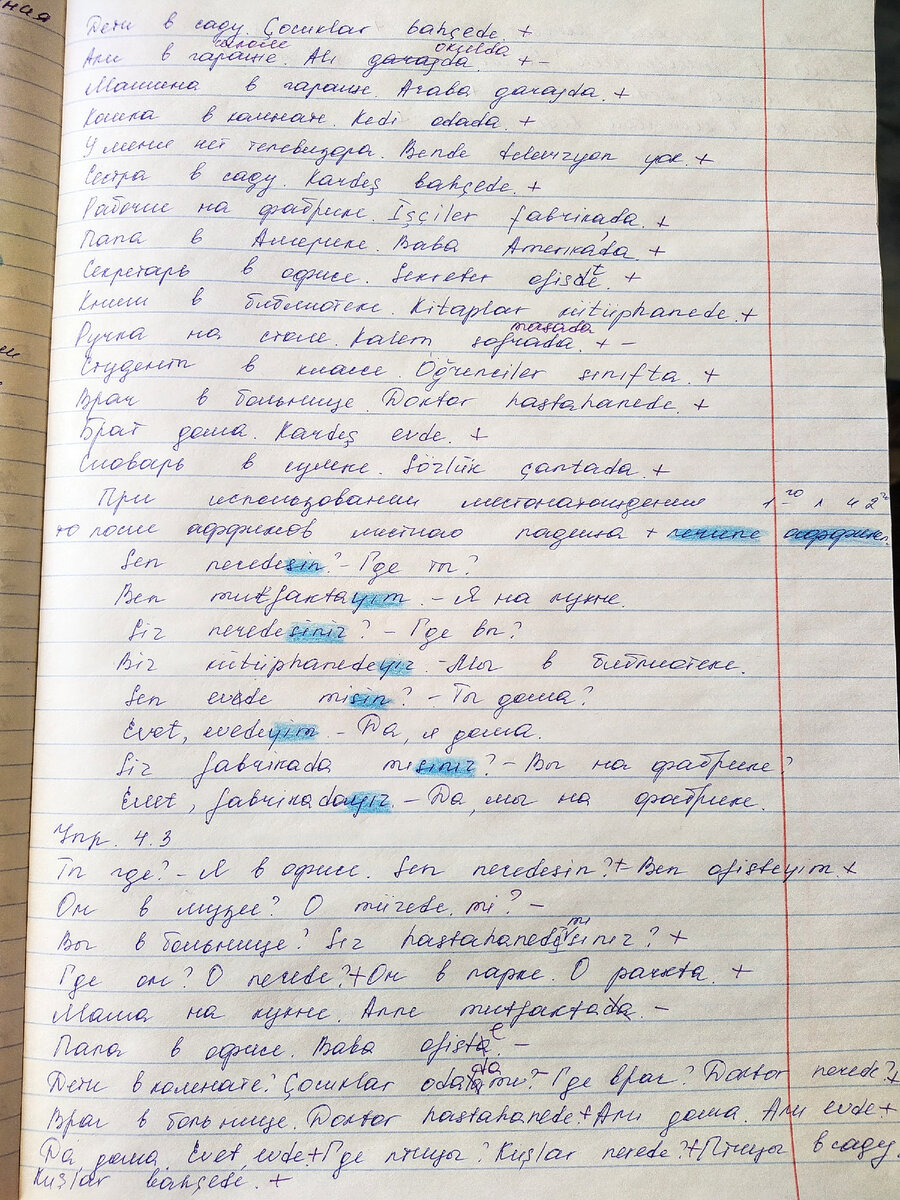 Дети в саду. Çocuklar bahçede. +
школе okulda
Али в гараже. Ali garajda. + -
Машина в гараже. Araba garajda. +
Кошка в комнате. Kedi odada. +
У меня нет телевизора. Bende televizyon yok. +
Сестра в саду. Kardeş bahçede. +
Рабочие на фабрике. İşçiler fabrikada. +
Папа в Америке. Baba Amerika'da. +
Секретарь в офисе. Sekreter ofiste. +
Книги в библиотеке. Kitaplar kütüphanede. +
masada
Ручка на столе. Kalem sofrada. + -
Студенты в классе. Öğrenciler sınıfta. +
Врач в больнице. Doktor hastahanede. +
Брат дома. Kardeş evde. +
Словарь в сумке. Sözlük çantada. +
При использовании местонахождения 1го л и 2го
после аффиксов местного падежа + личные аффикс.
Sen neredesin? - Где ты?
Ben mutfaktayım. - Я на кухне.
Siz neredesiniz? - Где вы?
Biz kütüphanedeyiz. - Мы в библиотеке.
Sen evde misin? - Ты дома?
Evet, evdeyim. - Да, я дома.
Siz fabrikada mısınız? - Вы на фабрике?
Evet, fabrikadayız. - Да, мы на фабрике.
Упр. 4.3
Ты где? - Я в офисе. Sen neredesin? + Ben ofisteyim. +
Он в музее? O müzede mi? -
Вы в больнице? Siz hastahanede misiniz? +
Где он? O nerede? + Он в парке. O parkta. +
Мама на кухне. Anne mutfaktada. -
Папа в офисе. Baba ofiste. -
Дети в комнате? Çocuklar odada mı? - Где врач? Doktor nerede? +
Врач в больнице. Doktor hastahanede. + Али дома. Ali evde +
Да, дома. Evet, evde + Где птицы? Kuşlar nerede? + Птицы в саду.
Kuşlar bahçede. +